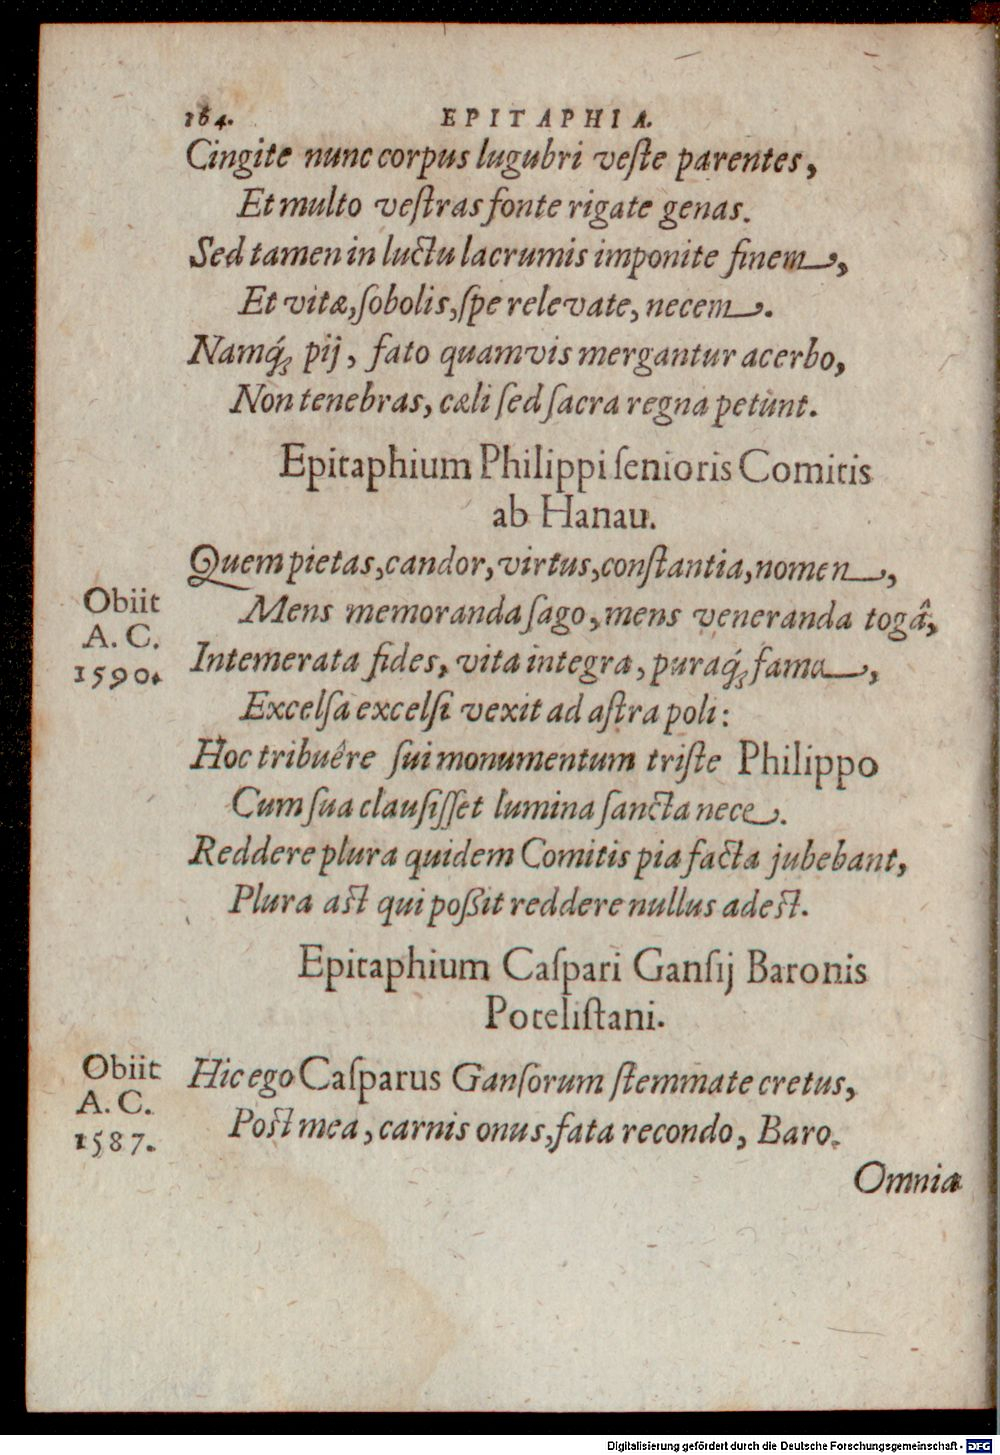 164.
EPITAPHIA.
Cingite nunc corpus lugubri veſte parentes,
Et multo veſtras fonte rigate genas.
Sed tamen in luctu lacrumis imponite finem,
Et vitæ, ſobolis, ſpe relevate, necem.
Namq́ꝫ pij, fato quamvis mergantur acerbo,
Non tenebras, cæli ſed ſacra regna petunt.
Epitaphium Philippi ſenioris Comitis
ab Hanau.
Quem pietas, candor, virtus, conſtantia, nomen,
Obiit
A. C.
1590.
Mens memoranda ſago, mens veneranda togâ,
Intemerata fides, vita integra, puraq́ꝫ fama,
Excelſa excelſi vexit ad aſtra poli:
Hoc tribuêre ſui monumentum triſte Philippo
Cum ſua clauſiſſet lumina ſancta nece.
Reddere plura quidem Comitis pia facta jubebant,
Plura aſt qui poßit reddere nullus adeſt.
Epitaphium Caſpari Ganſij Baronis
Poteliſtani.
Obiit
A. C.
1587.
Hic ego Caſparus Ganſorum ſtemmate cretus,
Poſt mea, carnis onus, fata recondo, Baro.
Omnia
Digitalisierung gefördert durch die Deutsche Forschungsgemeinschaft - DFG